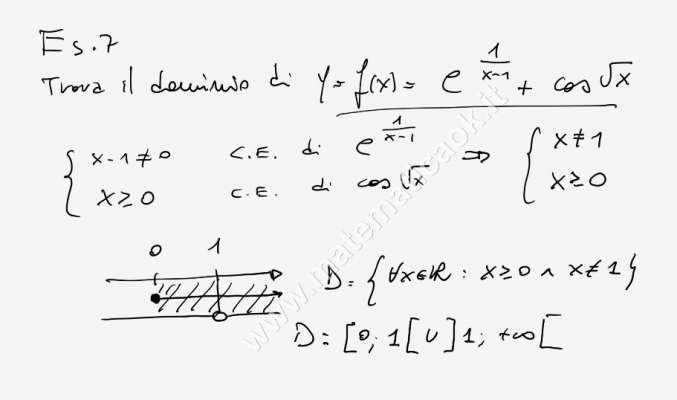 Es.7
Trova il dominio di y=f(x)= e^(1/(x-1)) + cos√x
{ x-1≠0 C.E. di e^(1/(x-1)) ⇒ { x≠1
x≥0 C.E. di cos√x x≥0
0 1
D= {∀x∈ℝ : x≥0 ∧ x≠1}
D= [0; 1[ ∪ ]1; +∞[
www.matematicaok.it